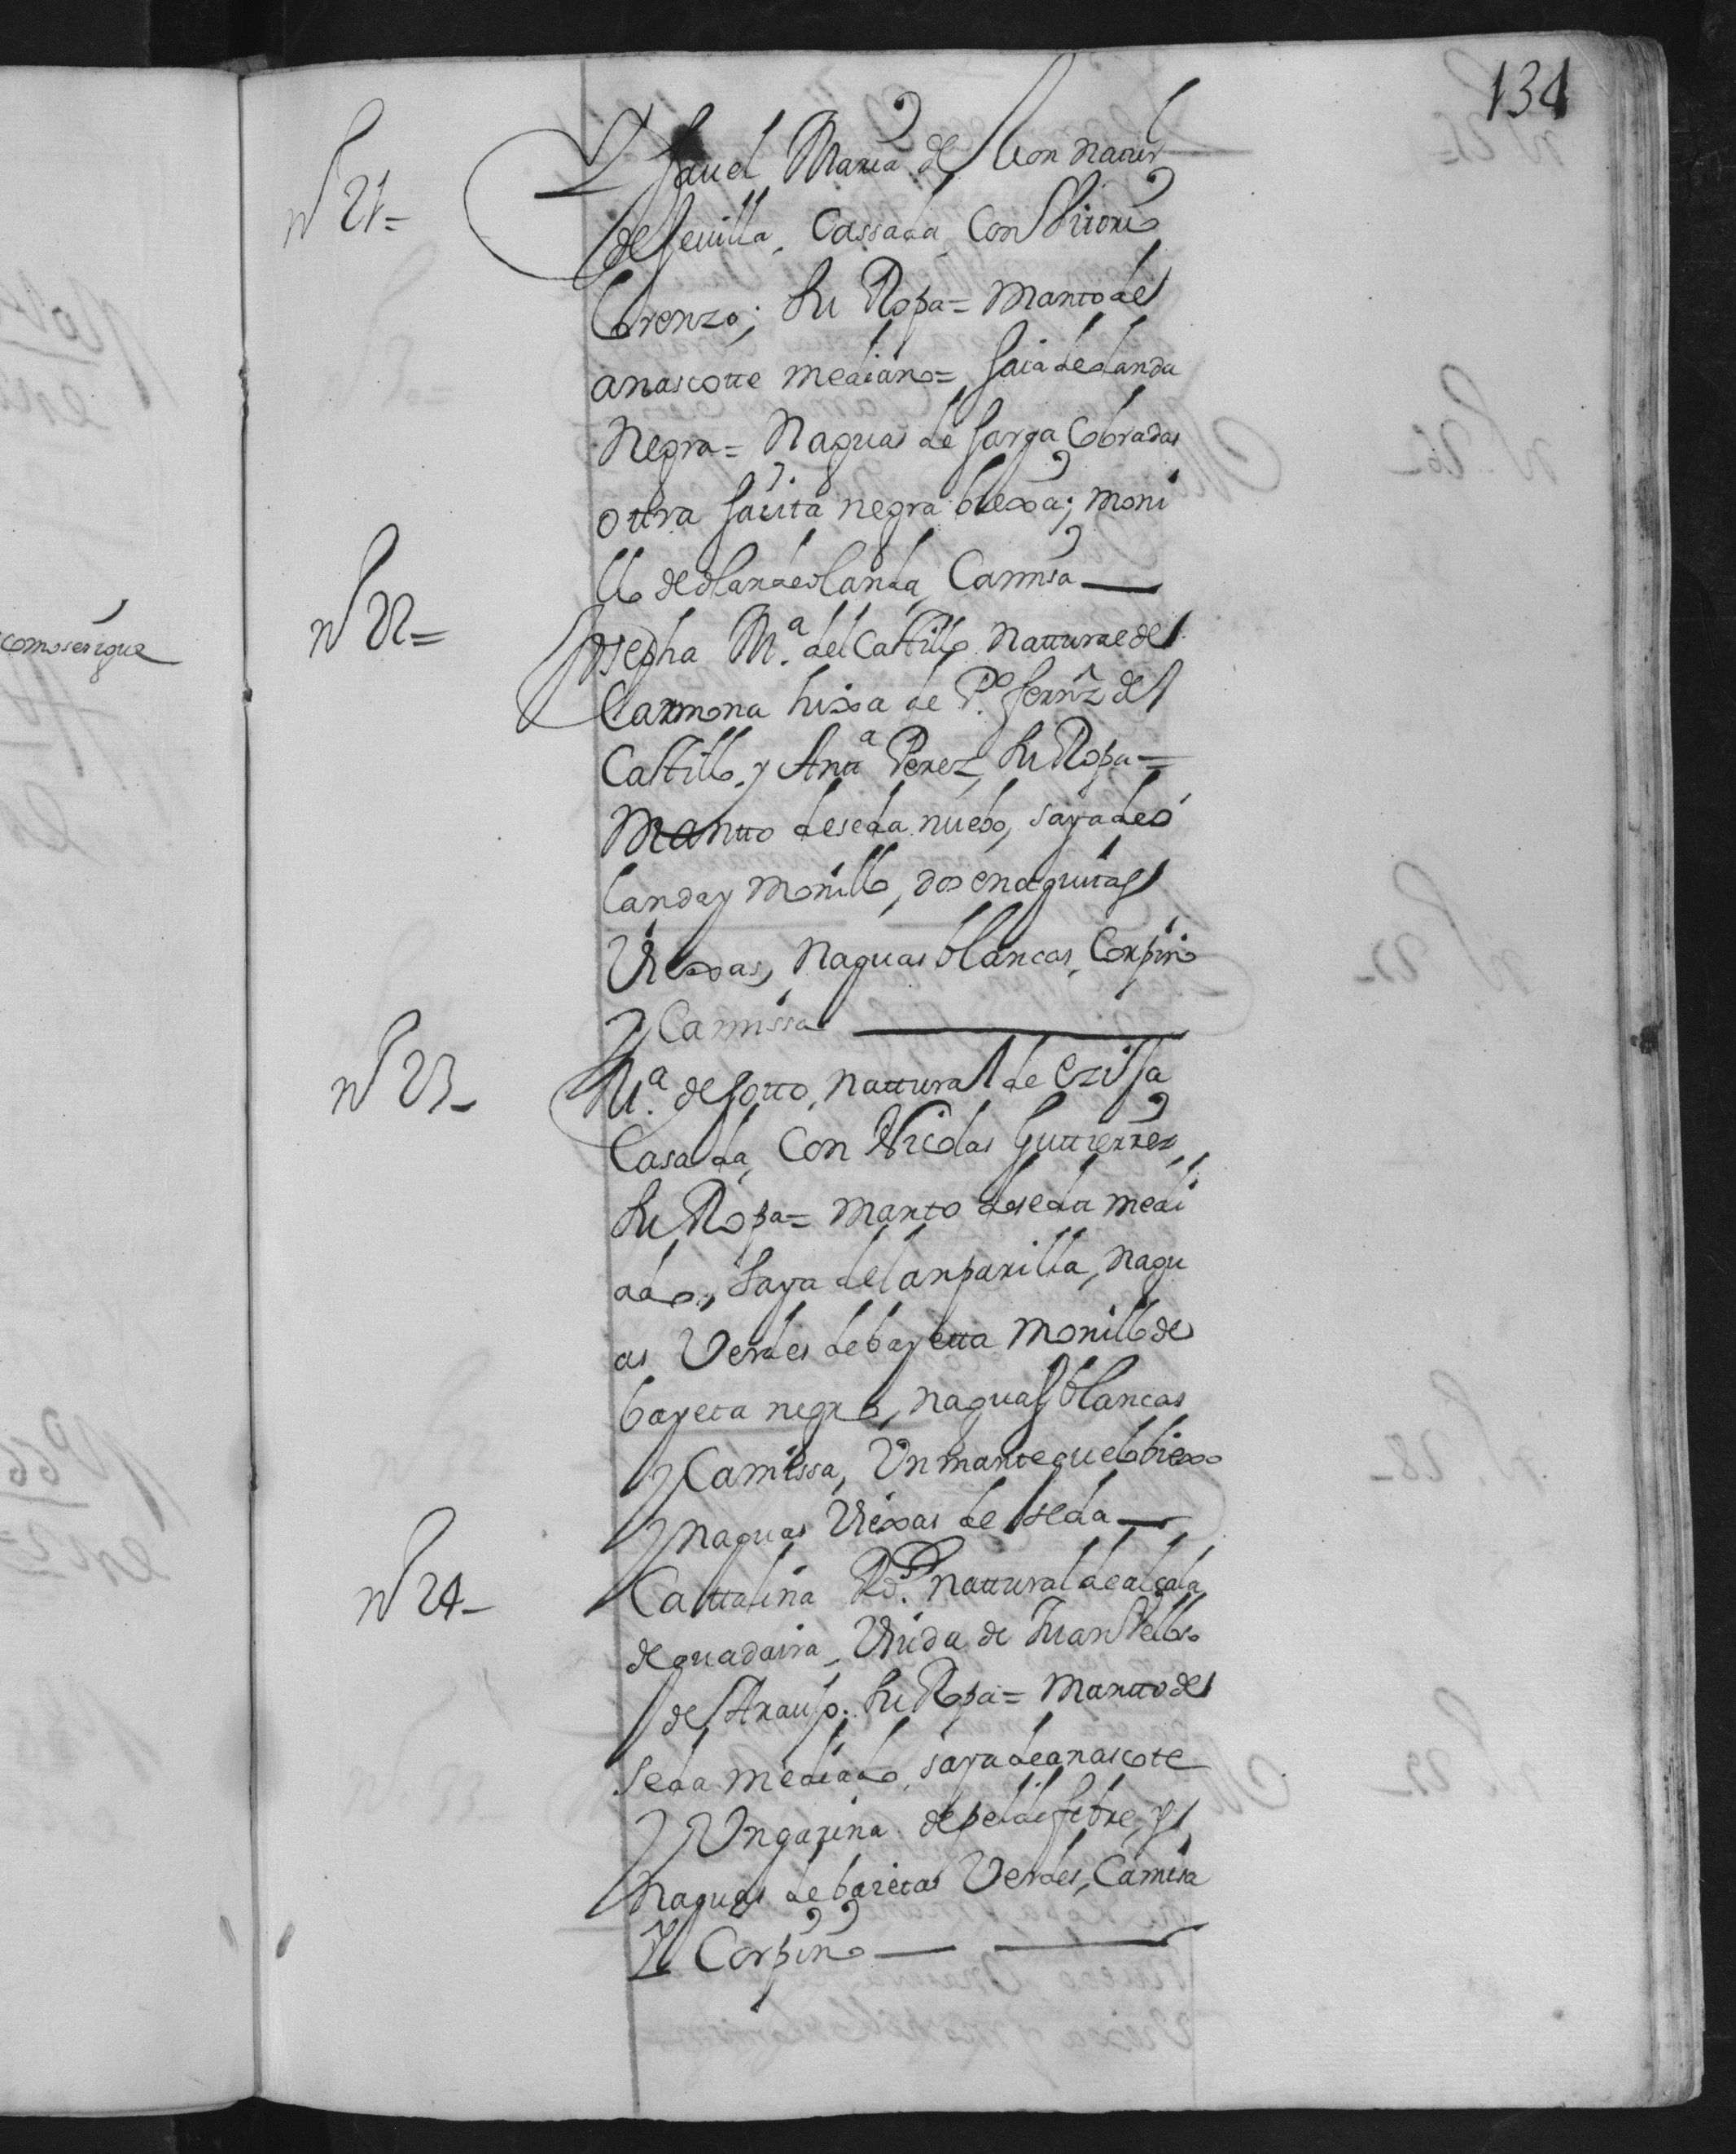 131
nº 21= Ysauel Maria de Leon natur
de seuilla, Cassada Con
Lorenzo; Su Ropa= Manto de
anascotte mediano= saia de landa
Negra= Naguas de sarga Cobradas
ottra saiita negra biexa; moni
llo de olanda Camisa
nº 22= Josepha Mª. del Castillo natturae de
Carmona hixa de Pº. fernz del
Castillo, y Anttª Perez, Su Ropa=
Mantto de seda nuebo, saya de ó
landa y Monillo, dos enaguitas
Viexas, Naguas blancas, Corpiño
y Camissa
nº 23- Mª. de sotto, nattural de ezixa
Casada, Con Nicolas Guttierrez,
Su Ropa= Manto de seda medi
ado, Saya de lanparilla, Nagu
as Verdes de bayetta Monillo de
bayeta negro, naguas blancas
y Camissa, Un mantequelo biexo
y naguas Viexas de seda
nº 24- Cattalina Rdz. nattural de alcala
de guadaira, Viuda de Juan Vello
de Araujo. Su Ropa= Mantto de
seda mediado, saya de anascote
y Ungarina de pelo de febre, y
naguas de baietas Verdes, Camisa
y Corpiño
como se sigue